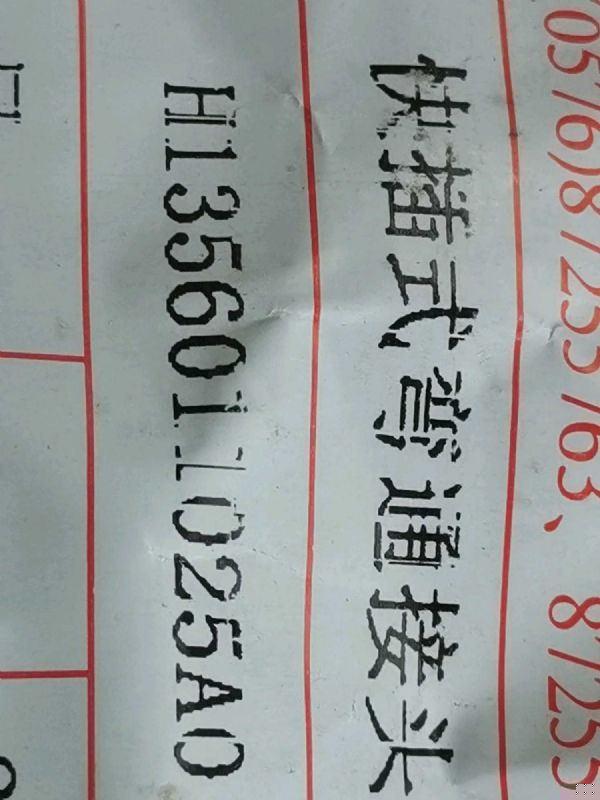 0576)87255763、 87255
快插式弯通接头
H1356011025A0